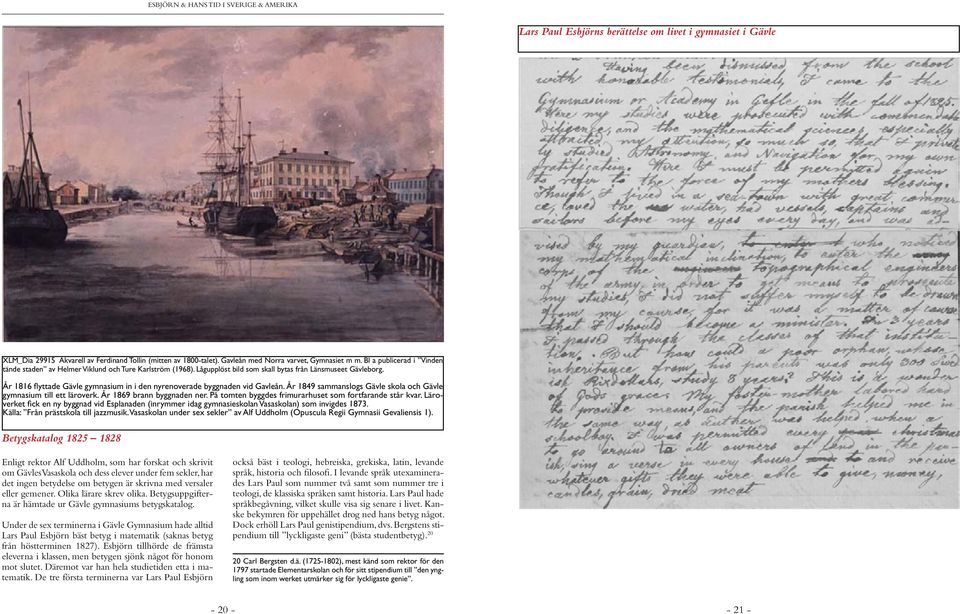 ESBJÖRN & HANS TID I SVERIGE & AMERIKA
XLM_Dia 29915 Akvarell av Ferdinand Tollin (mitten av 1800-talet). Gavleån med Norra varvet, Gymnasiet m m. Bl a publicerad i ”Vinden
tände staden” av Helmer Viklund och Ture Karlström (1968). Lågupplöst bild som skall bytas från Länsmuseet Gävleborg.
År 1816 flyttade Gävle gymnasium in i den nyrenoverade byggnaden vid Gavleån. År 1849 sammanslogs Gävle skola och Gävle
gymnasium till ett läroverk. År 1869 brann byggnaden ner. På tomten byggdes frimurarhuset som fortfarande står kvar. Läro-
verket fick en ny byggnad vid Esplanaden (inrymmer idag gymnasieskolan Vasaskolan) som invigdes 1873.
Källa: ”Från prästskola till jazzmusik. Vasaskolan under sex sekler” av Alf Uddholm (Opuscula Regii Gymnasii Gevaliensis 1).
Betygskatalog 1825 – 1828
Enligt rektor Alf Uddholm, som har forskat och skrivit
om Gävles Vasaskola och dess elever under fem sekler, har
det ingen betydelse om betygen är skrivna med versaler
eller gemener. Olika lärare skrev olika. Betygsuppgifter-
na är hämtade ur Gävle gymnasiums betygskatalog.
Under de sex terminerna i Gävle Gymnasium hade alltid
Lars Paul Esbjörn bäst betyg i matematik (saknas betyg
från höstterminen 1827). Esbjörn tillhörde de främsta
eleverna i klassen, men betygen sjönk något för honom
mot slutet. Däremot var han hela studietiden etta i ma-
tematik. De tre första terminerna var Lars Paul Esbjörn
också bäst i teologi, hebreiska, grekiska, latin, levande
språk, historia och filosofi. I levande språk utexaminera-
des Lars Paul som nummer två samt som nummer tre i
teologi, de klassiska språken samt historia. Lars Paul hade
språkbegåvning, vilket skulle visa sig senare i livet. Kan-
ske bekymren för uppehället drog ned hans betyg något.
Dock erhöll Lars Paul genistipendium, dvs. Bergstens sti-
pendium till ”lyckligaste geni” (bästa studentbetyg). 20
20 Carl Bergsten d.ä. (1725-1802), mest känd som rektor för den
1797 startade Elementarskolan och för sitt stipendium till ”den yng-
ling som inom werket utmärker sig för lyckligaste genie”.
- 20 -
Lars Paul Esbjörns berättelse om livet i gymnasiet i Gävle
Having been dismissed from the school
with honorable testimonials, I came to the
Gymnasium or Academy in Gefle in the fall of 1825.
Here my studies were prosecuted with commendable
diligence, and the mathematical sciences, especially
attracted my attention, so much so, that I private
ly studied Astronomy and Navigation for my own
gratification. Here I must be permitted again
to refer to the force of my mothers blessing.
Though I lived in a sea-town with great commer
ce, loved the water, had vessels, captains and
sailors before my eyes every day, and was ad-
vised by my guardian, who noticed
my mathematical inclination, to enter the
corps, of the topographical engineers
of the army in order to get means to prosecute
my studies, I did not suffer myself to be drawn
from my course, for it was a matter of course
that I should become a minister. In 3 years
I finished the classes of that institution
How could a poor orphan, whose
inheritance
Rixdollars, study 8 years? This is a wonder
of Gods grace. My
to provide means, and the parish helped me in
the same way, as duther was helped when a
schoolboy. I was permitted
to go around to all owners of land in the par-
ish, sing a verse in every house, and to receive
whatever gifts they were able to give, money,
candles, grain, dried meat
- 21 -